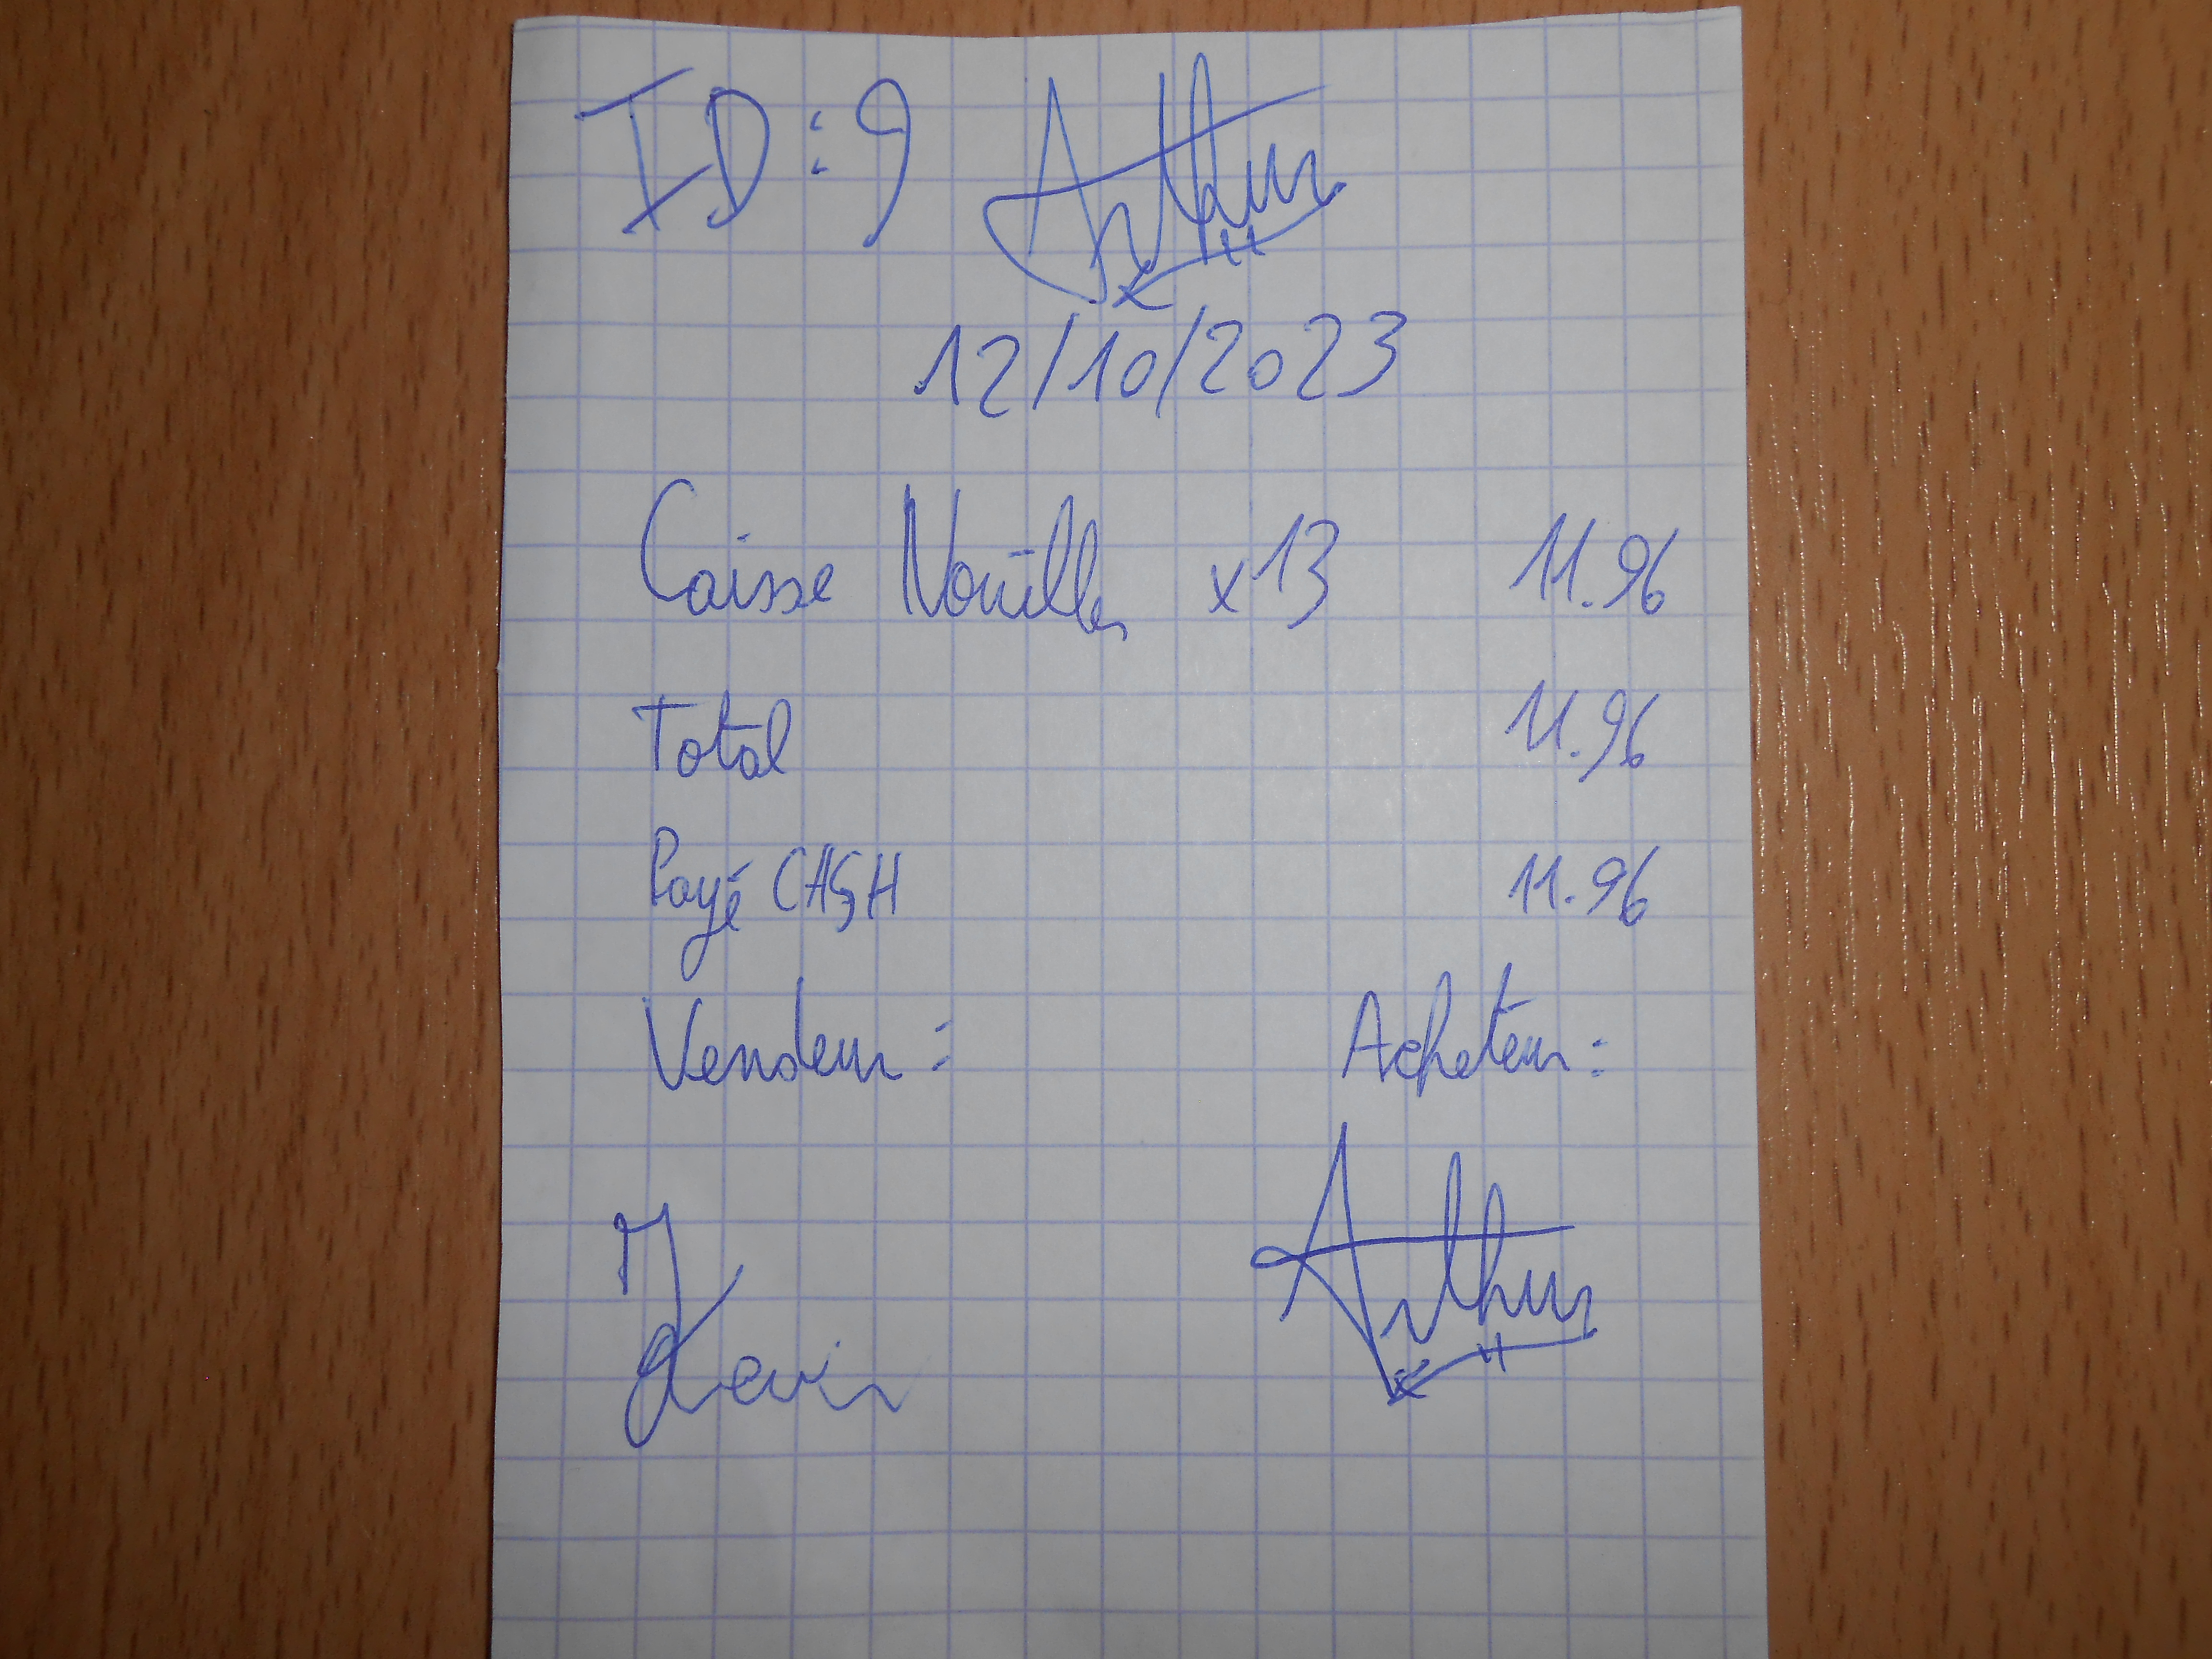 ID:9 Arthur
12/10/2023
Caisse Nouilles x13 11.96
Total 11.96
Payé CASH 11.96
Vendeur: Acheteur:
Kevin Arthur